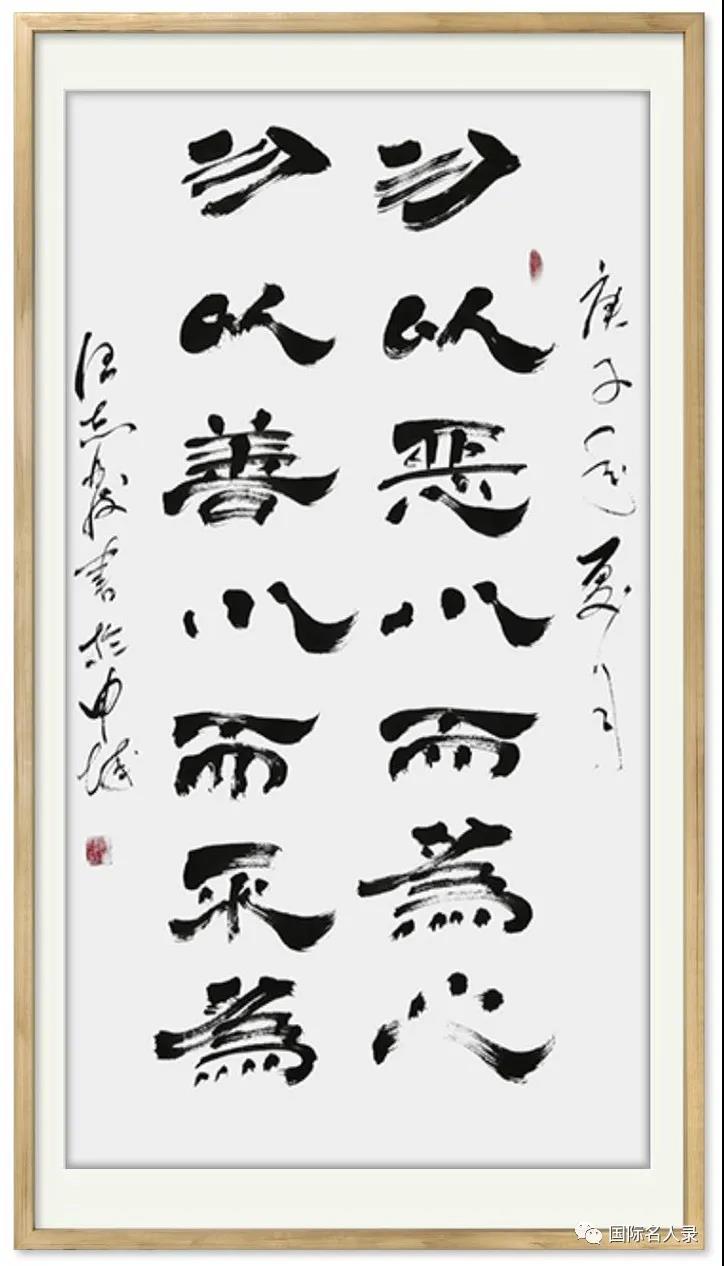 庚子年夏月
勿以恶小而為之
勿以善小而不為
汪志書於申城
国际名人录